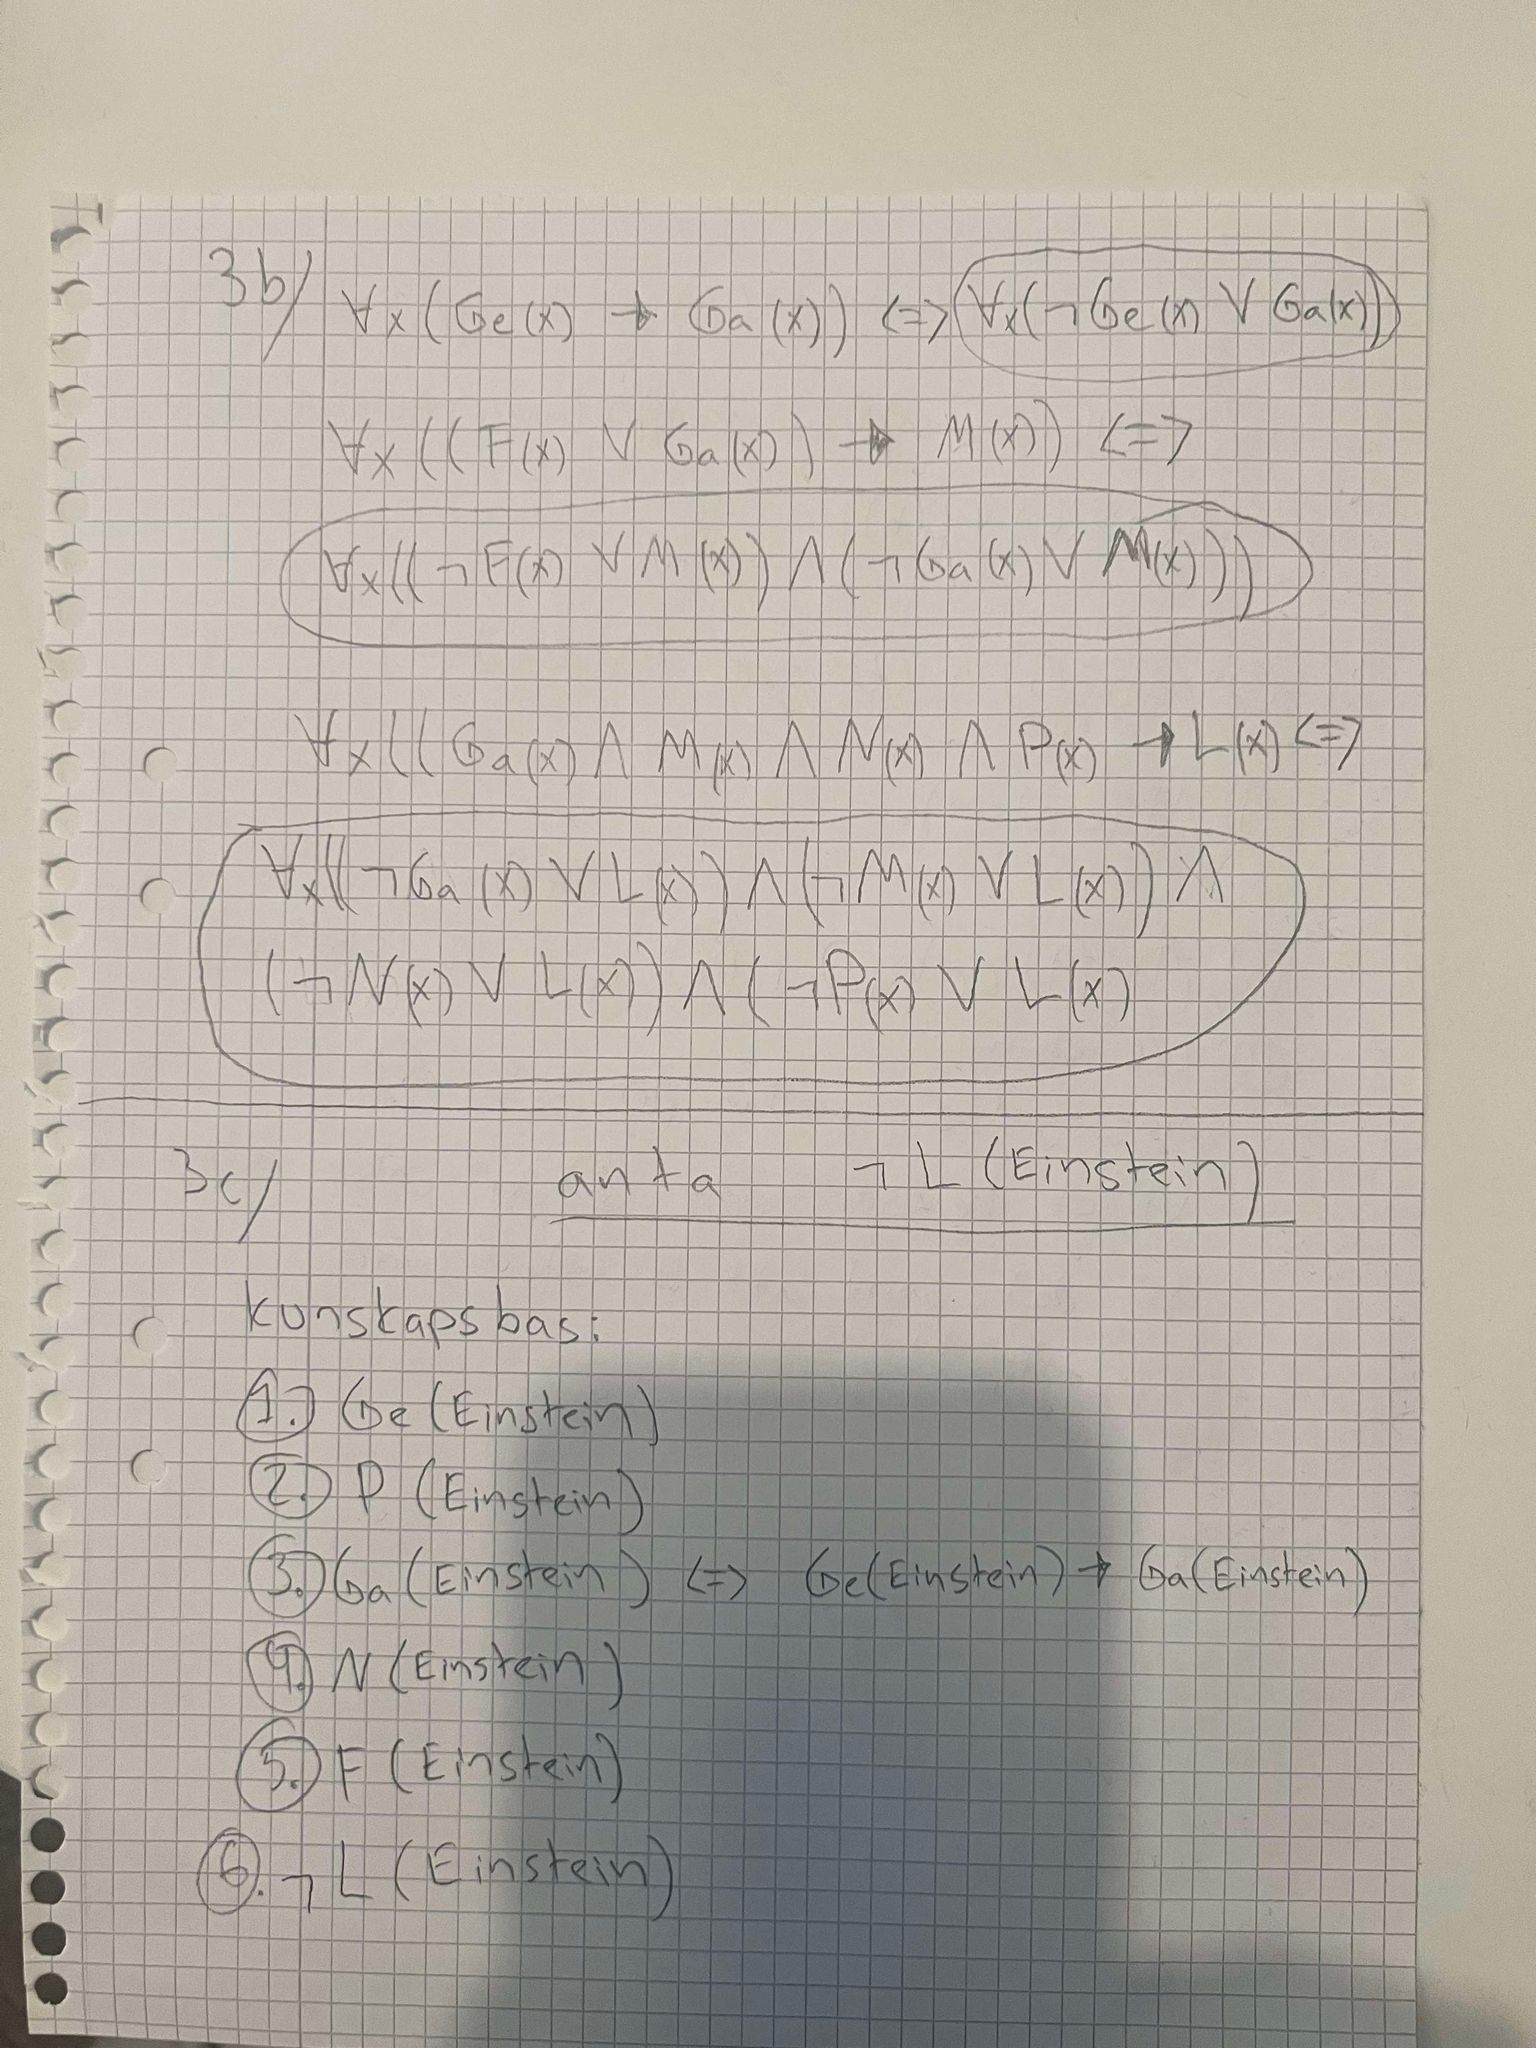 3b/ ∀x(Ge(x) → Ga(x)) <=> ∀x(¬Ge(x) ∨ Ga(x))
∀x((F(x) ∨ Ga(x)) → M(x)) <=>
∀x((¬F(x) ∨ M(x)) ∧ (¬Ga(x) ∨ M(x)))
∀x((Ga(x) ∧ M(x) ∧ N(x) ∧ P(x) → L(x) <=>
∀x((¬Ga(x) ∨ L(x)) ∧ (¬M(x) ∨ L(x)) ∧
(¬N(x) ∨ L(x)) ∧ (¬P(x) ∨ L(x)
3c/ anta ¬L(Einstein)
kunskapsbas:
1. Ge(Einstein)
2. P(Einstein)
3. Ga(Einstein) <=> Ge(Einstein) → Ga(Einstein)
4. N(Einstein)
5. F(Einstein)
6. ¬L(Einstein)